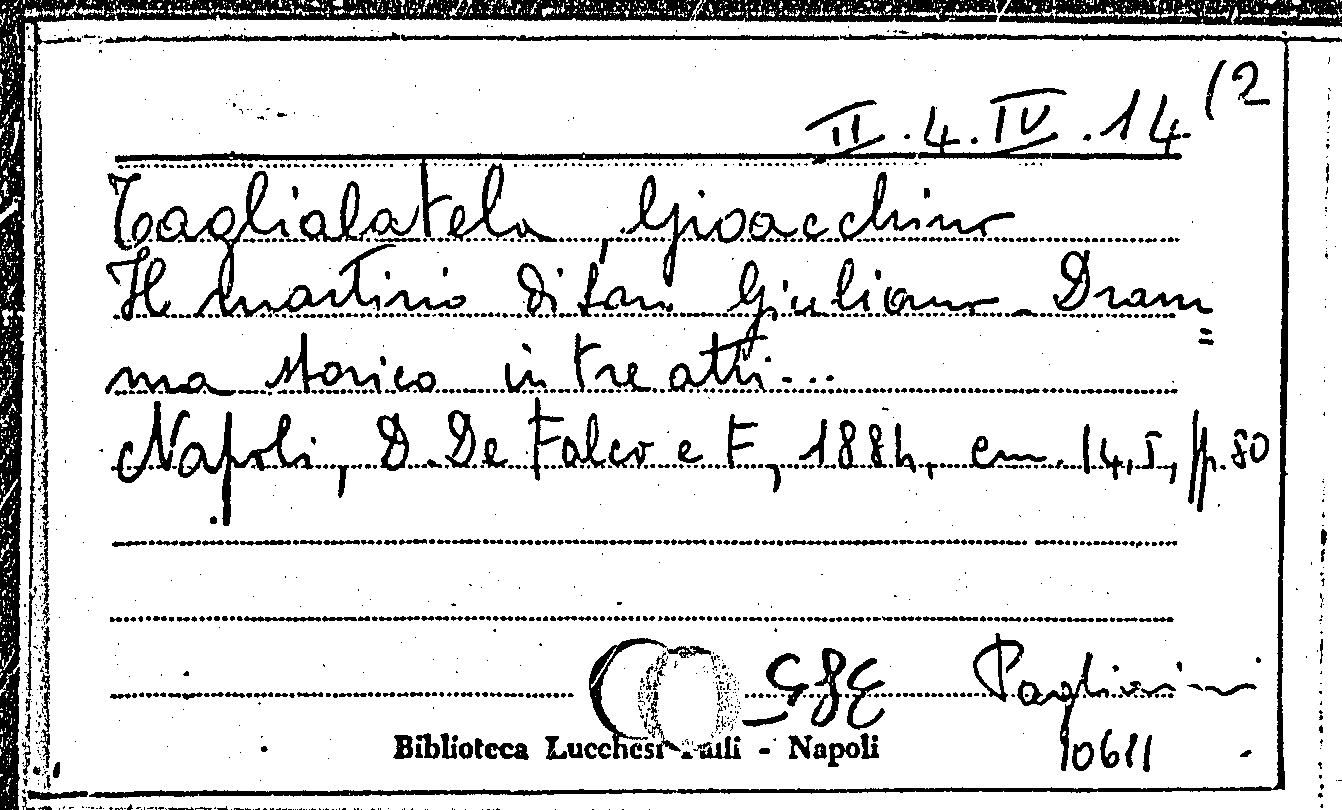 II.4.IV.14 (2
Taglialatela, Gioacchino
Il martirio di San Giuliano - Dram=
ma storico in tre atti...
Napoli, D. De Falco e F, 1884, cm. 14,5, pp. 80
Pagliarini
Biblioteca Lucchesi Palli - Napoli
10611